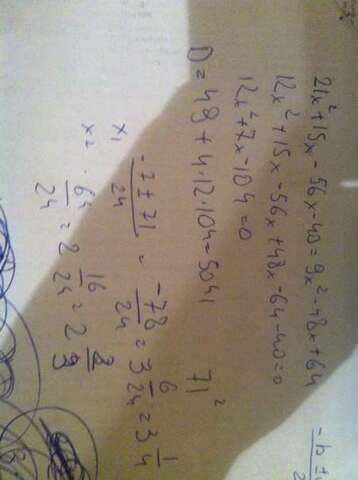 21x²+15x-56x-40=9x²-48x+64
12x²+15x-56x+48x-64-40=0
12x²+7x-104=0
D=49+4·12·104=5041 71²
x₁ \frac{-7±71}{24} = \frac{-78}{24} = 3\frac{6}{24} = 3\frac{1}{4}
x₂ \frac{64}{24} = 2\frac{16}{24} = 2